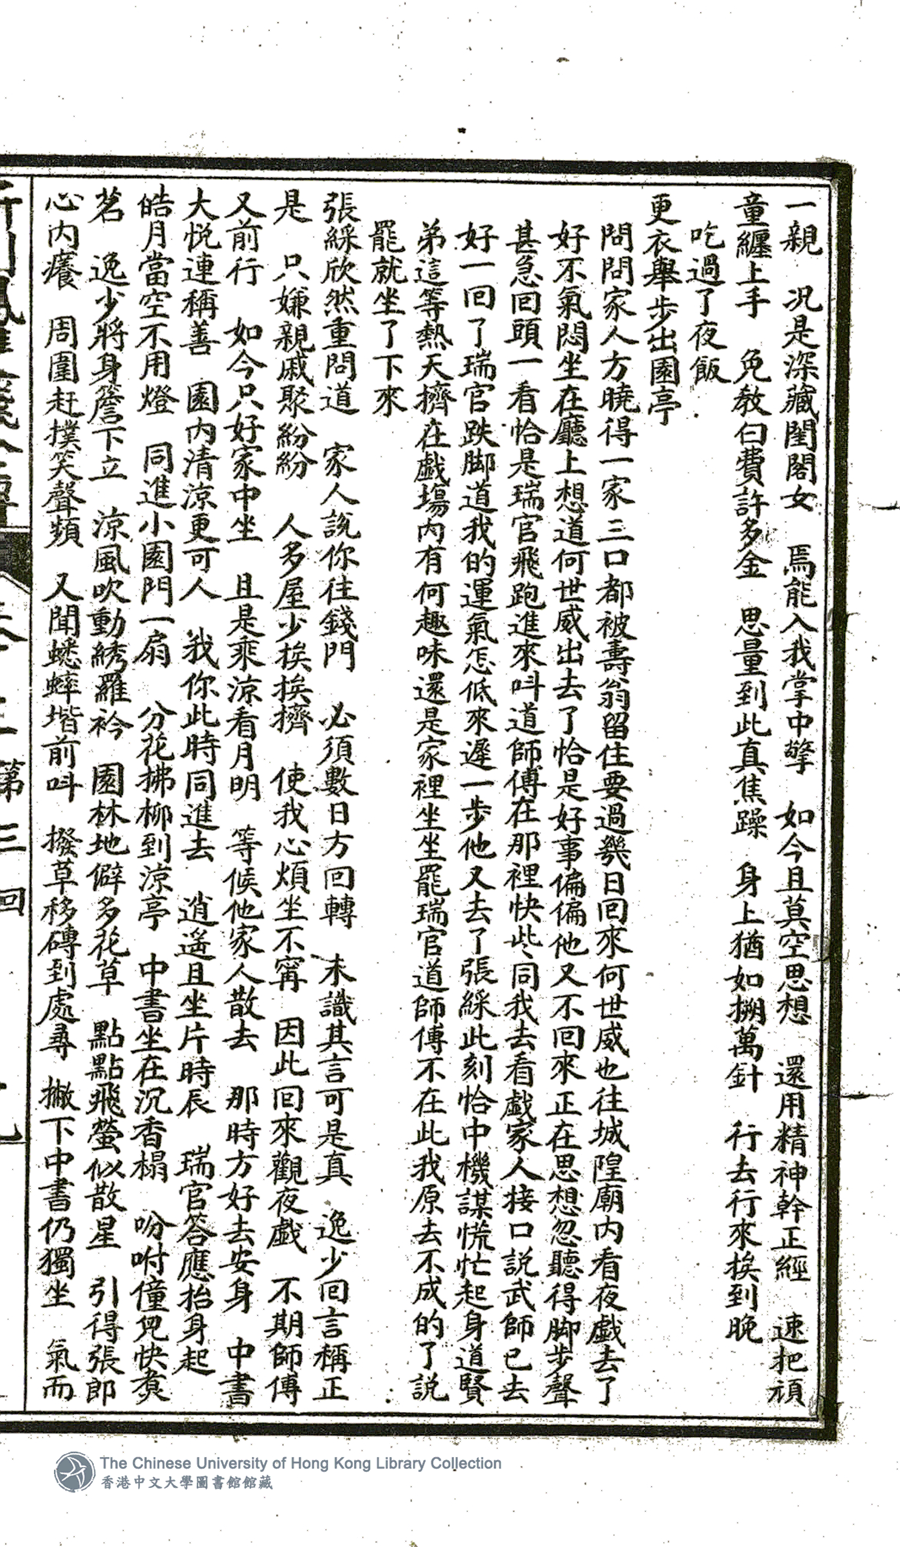 一親　况是深藏閨閣女　焉能入我掌中擎　如今且莫空思想　還用精神幹正經　速把頑
童纏上手　免教白費許多金　思量到此真焦躁　身上猶如搠萬針　行去行來挨到晚
吃過了夜飯
更衣舉步出園亭
問問家人方曉得一家三口都被壽翁留住要過幾日回來何世威也往城隍廟内看夜戲去了
好不氣悶坐在廳上想道何世威出去了恰是好事偏偏他又不回來正在思想忽聽得脚步聲
甚急回頭一看恰是瑞官飛跑進來叫道師傅在那裡快些同我去看戲家人接口説武師已去
好一回了瑞官跌脚道我的運氣怎低來遲一步他又去了張綵此刻恰中機謀慌忙起身道賢
弟這等熱天擠在戲塲内有何趣味還是家裡坐坐罷瑞官道師傅不在此我原去不成的了説
罷就坐了下來
張綵欣然重問道　家人說你往錢門　必須數日方回轉　未識其言可是真　逸少回言稱正
是　只嫌親戚聚紛紛　人多屋少挨挨擠　使我心煩坐不寗　因此回來觀夜戲　不期師傅
又前行　如今只好家中坐　且是乘涼看月明　等候他家人散去　那時方好去安身　中書
大悦連稱善　園内清涼更可人　我你此時同進去　逍遥且坐片時辰　瑞官答應抬身起
皓月當空不用燈　同進小園門一扇　分花拂柳到涼亭　中書坐在沉香榻　吩咐僮兒快煑
茗　逸少將身簷下立　涼風吹動綉羅衿　園林地僻多花草　點點飛螢似散星　引得張郎
心内癢　周圍赶撲笑聲頻　又聞蟋蟀堦前叫　撥草移磚到處尋　撇下中書仍獨坐　氣而
第三回
The Chinese University of Hong Kong Library Collection
香港中文大學圖書館館藏